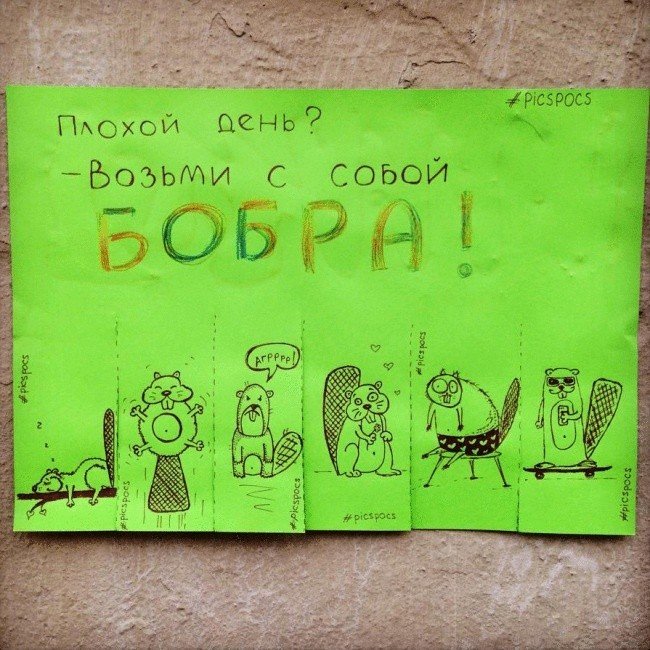 #PICSPOCS
Плохой день?
-Возьми с собой
БОБРА!
#picspocs
z z z
#picspocs
Агрррр!
#picspocs
#picspocs
#picspocs
#picspocs